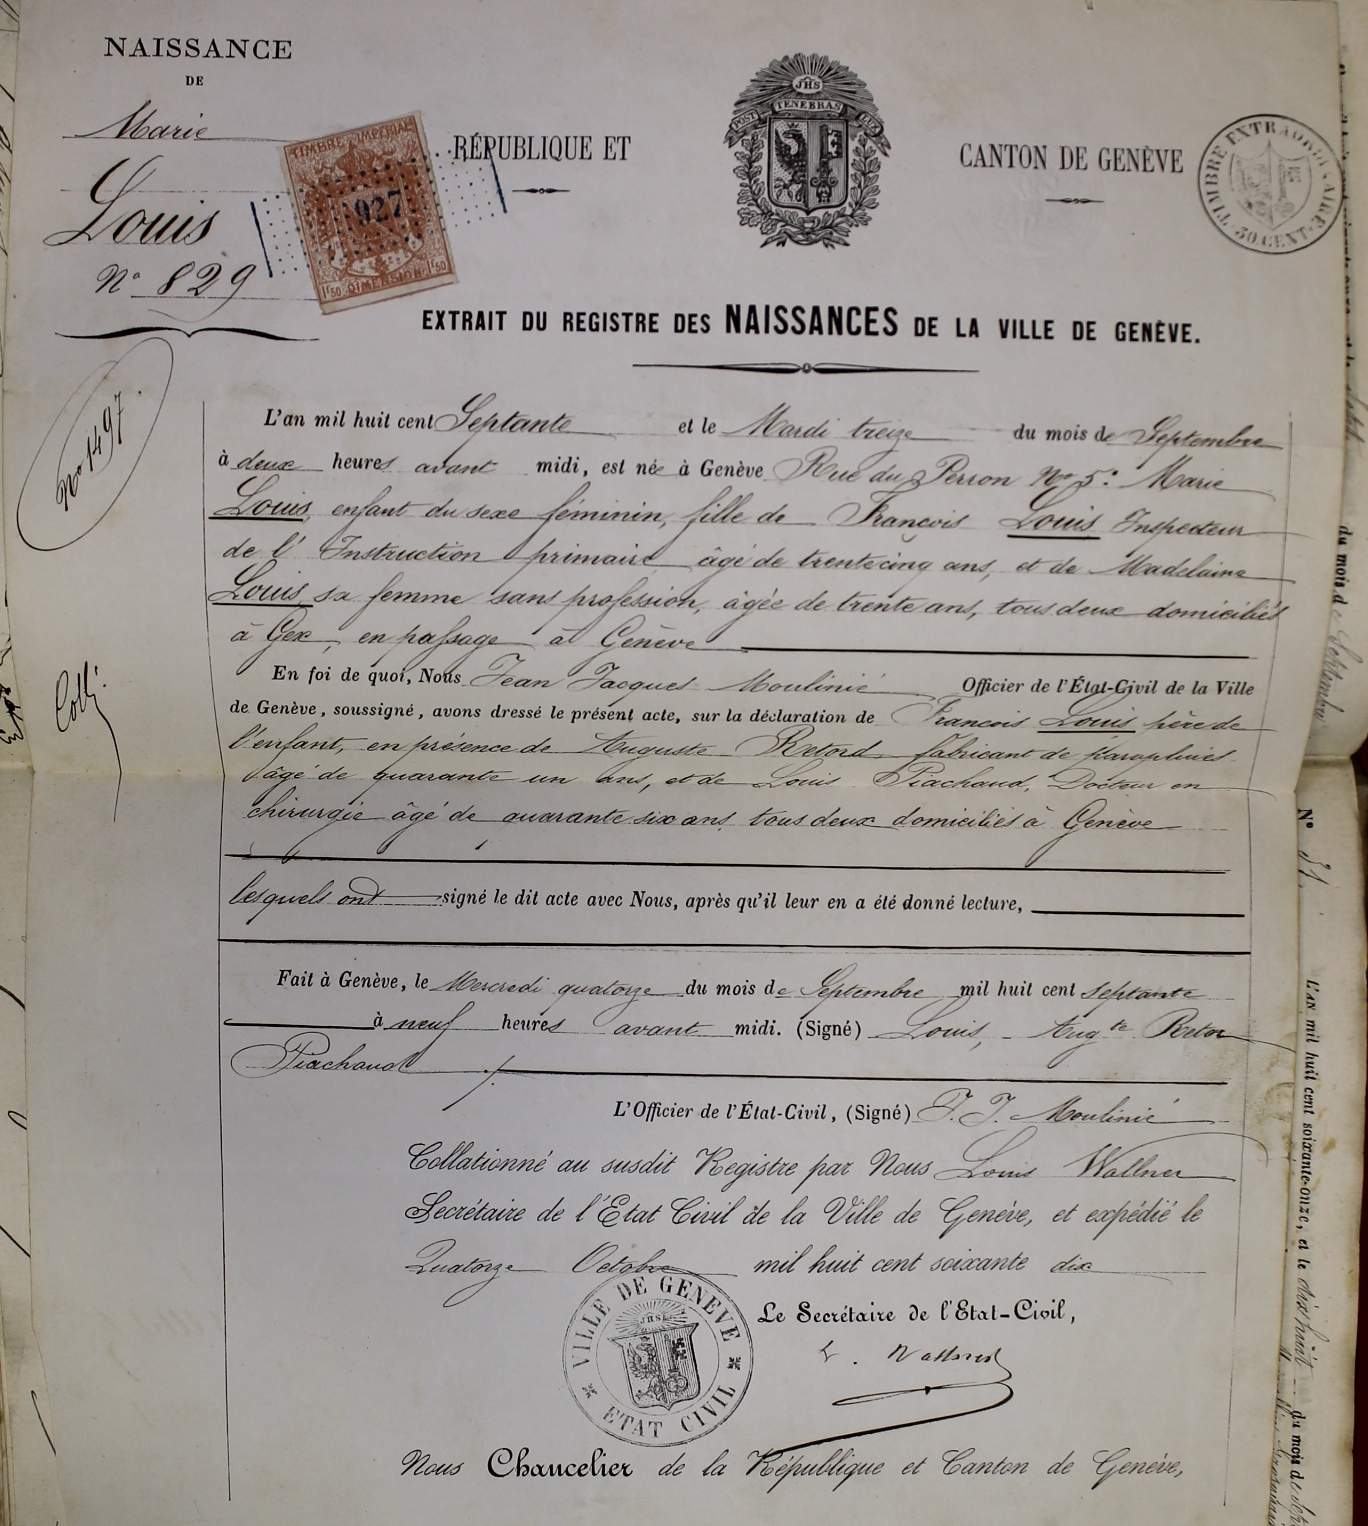 NAISSANCE
DE
Marie
Louis
No 829
TIMBRE IMPÉRIAL
927
1f50 DIMENSION 1f50
RÉPUBLIQUE ET
JHS
POST TENEBRAS LUX
CANTON DE GENÈVE
TIMBRE EXTRAORDINAIRE
50 CENT
EXTRAIT DU REGISTRE DES NAISSANCES DE LA VILLE DE GENÈVE.
No 1497.
L'an mil huit cent Septante et le Mardi treize du mois de Septembre
à deux heures avant midi, est née à Genève Rue du Perron No 5. Marie
Louis, enfant du sexe féminin, fille de François Louis Inspecteur
de l'Instruction primaire, âgé de trente cinq ans, et de Madelaine
Louis, sa femme sans profession, âgée de trente ans, tous deux domiciliés
à Gex, en passage à Genève
En foi de quoi, Nous Jean Jacques Moulinié Officier de l'État-Civil de la Ville
de Genève, soussigné, avons dressé le présent acte, sur la déclaration de François Louis père de
l'enfant, en présence de Auguste Retord fabricant de
âgé de quarante un ans, et de Louis Piachaud, Docteur en
chirurgie âgé de quarante six ans, tous deux domiciliés à Genève
lesquels ont signé le dit acte avec Nous, après qu'il leur en a été donné lecture,
Fait à Genève, le Mercredi quatorze du mois de Septembre mil huit cent septante
à neuf heures avant midi. (Signé) Louis, Augte Retor
Piachaud
L'Officier de l'État-Civil, (Signé) J. J. Moulinié
Collationné au susdit Registre par Nous Louis Wallner
Secrétaire de l'Etat Civil de la Ville de Genève, et expédié le
Quatorze Octobre mil huit cent soixante dix
Le Secrétaire de l'Etat-Civil,
L. Wallner
VILLE DE GENÈVE
ETAT CIVIL
Nous Chancelier de la République et Canton de Genève,
du mois de Septembre
No 31.
L'an mil huit cent soixante-onze, et le dix huit du mois de